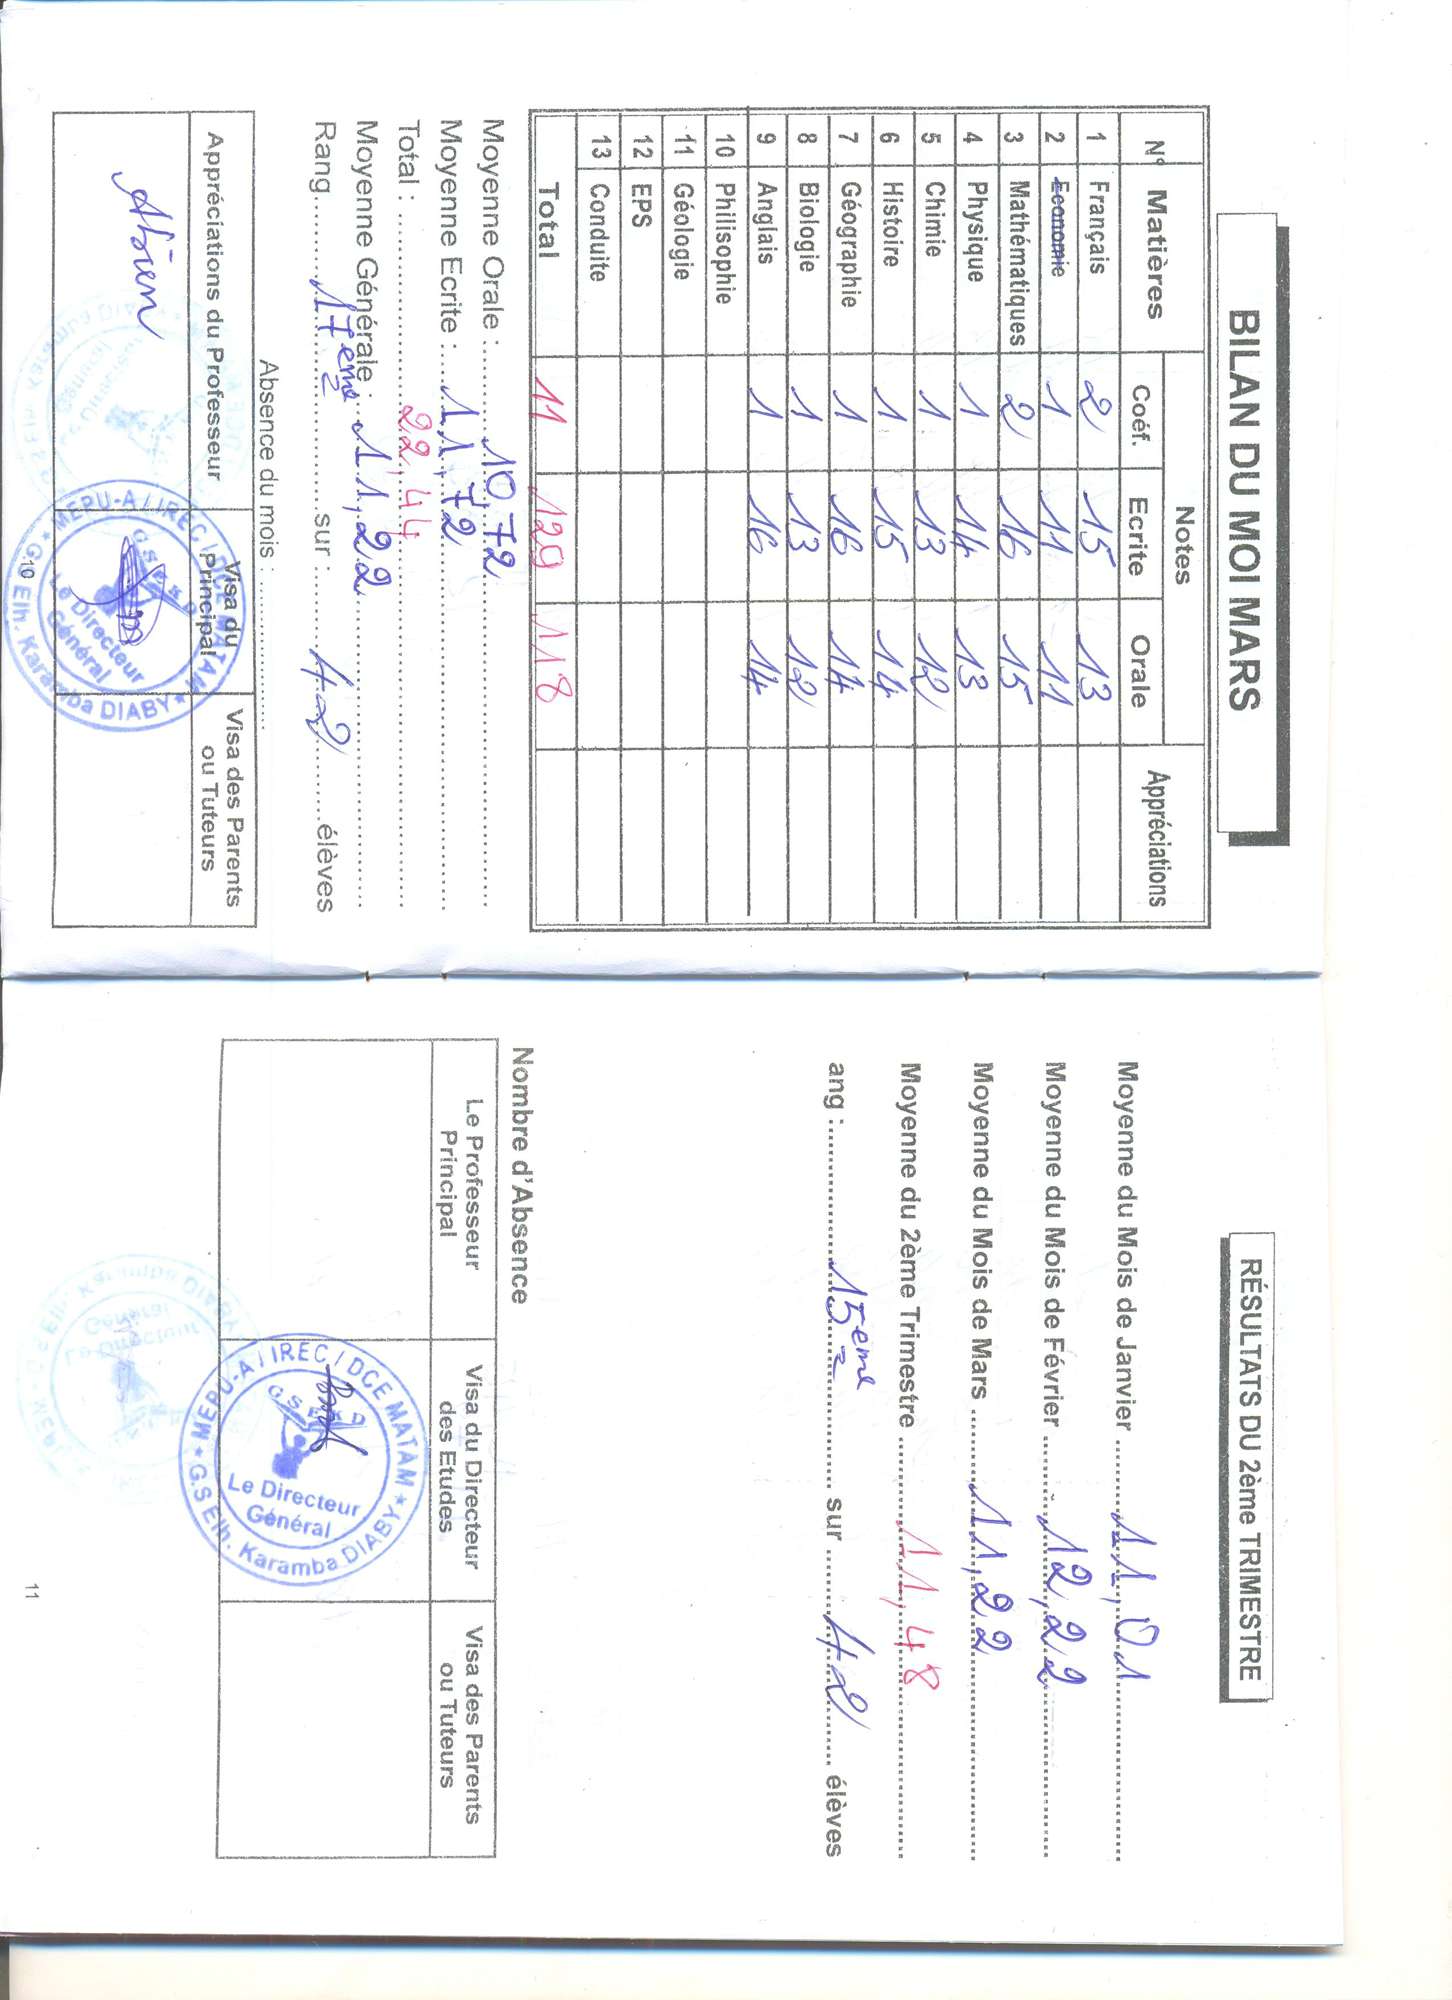 BILAN DU MOI MARS
N° Matières Notes Appréciations
Coéf. Ecrite Orale
1 Français 2 15 13
2 Economie 1 11 11
3 Mathématiques 2 16 15
4 Physique 1 14 13
5 Chimie 1 13 12
6 Histoire 1 15 14
7 Géographie 1 16 14
8 Biologie 1 13 12
9 Anglais 1 16 14
10 Philisophie
11 Géologie
12 EPS
13 Conduite
Total 11 129 118
Moyenne Orale : 10,72
Moyenne Ecrite : 11,72
Total : 22,44
Moyenne Générale : 11,22
Rang 17eme sur : 42 élèves
Absence du mois :
Appréciations du Professeur
Visa du Principal
Visa des Parents ou Tuteurs
MEPU-A / IREC / DCE MATAM
GSEKD
Le Directeur
Général
G.S Elh. Karamba DIABY
10
RÉSULTATS DU 2ème TRIMESTRE
Moyenne du Mois de Janvier 11,01
Moyenne du Mois de Février 12,22
Moyenne du Mois de Mars 11,22
Moyenne du 2ème Trimestre 11,48
ang : 15eme sur 42 élèves
Nombre d'Absence
Le Professeur Principal
Visa du Directeur des Etudes
Visa des Parents ou Tuteurs
MEPU-A / IREC / DCE MATAM
GSEKD
Le Directeur
Général
G.S Elh. Karamba DIABY
11